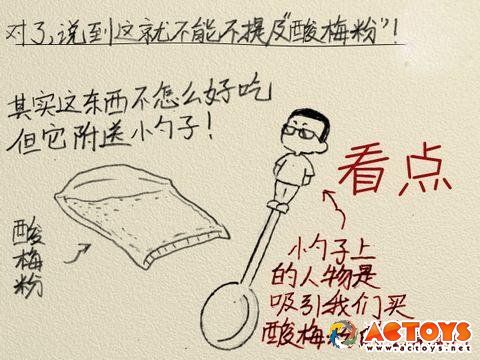 对了,说到这就不能不提及“酸梅粉”!
其实这东西不怎么好吃
但它附送小勺子!
看点
酸梅粉
小勺子上
的人物是
吸引我们买
酸梅
ACTOYS
www.actoys.net